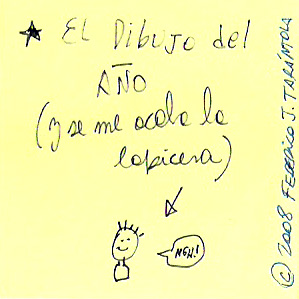 ★ EL DIBUJO del
AÑO
(y se me acaba la
lapicera)
MEH!
© 2008 FEDERICO J. TARÁNTOLA